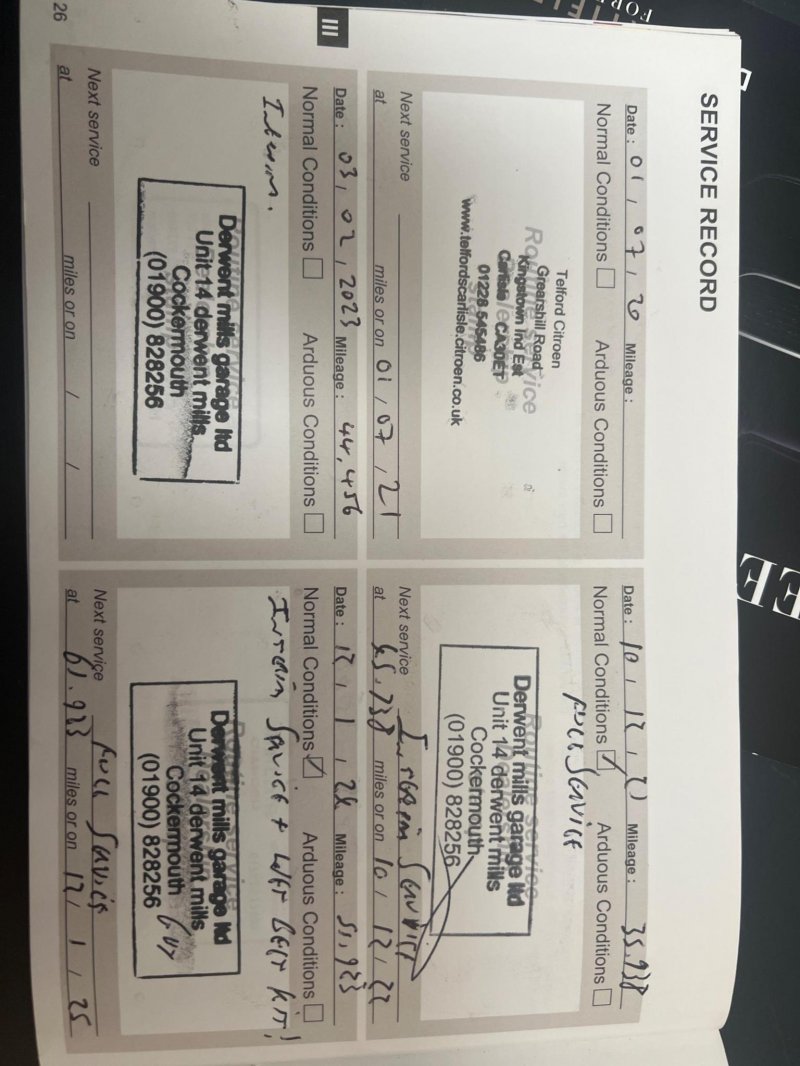 SERVICE RECORD
Date : 01 / 07 / 20 Mileage :
Normal Conditions Arduous Conditions
Routine service
Telford Citroen
Grearshill Road
Kingstown Ind Est
Carlisle CA30ET
01228 545486
www.telfordscarlisle.citroen.co.uk
Next service
at miles or on 01 / 07 / 21
Date : 10 / 12 / 21 Mileage : 35.938
Normal Conditions Arduous Conditions
FULL SERVICE
Routine service
Derwent mills garage ltd
Unit 14 derwent mills
Cockermouth
(01900) 828256
Next service INTERIM SERVICE
at 45.738 miles or on 10 / 12 / 22
III
Date : 03 / 02 / 2023 Mileage : 44,456
Normal Conditions Arduous Conditions
Interim.
Derwent mills garage ltd
Unit 14 derwent mills
Cockermouth
(01900) 828256
Next service
at miles or on / /
Date : 12 / 1 / 24 Mileage : 51.923
Normal Conditions Arduous Conditions
INTERIM SERVICE + WET BELT KIT!
Derwent mills garage ltd
Unit 14 derwent mills
Cockermouth
(01900) 828256
Next service FULL SERVICE
at 61.923 miles or on 12 / 1 / 25
26